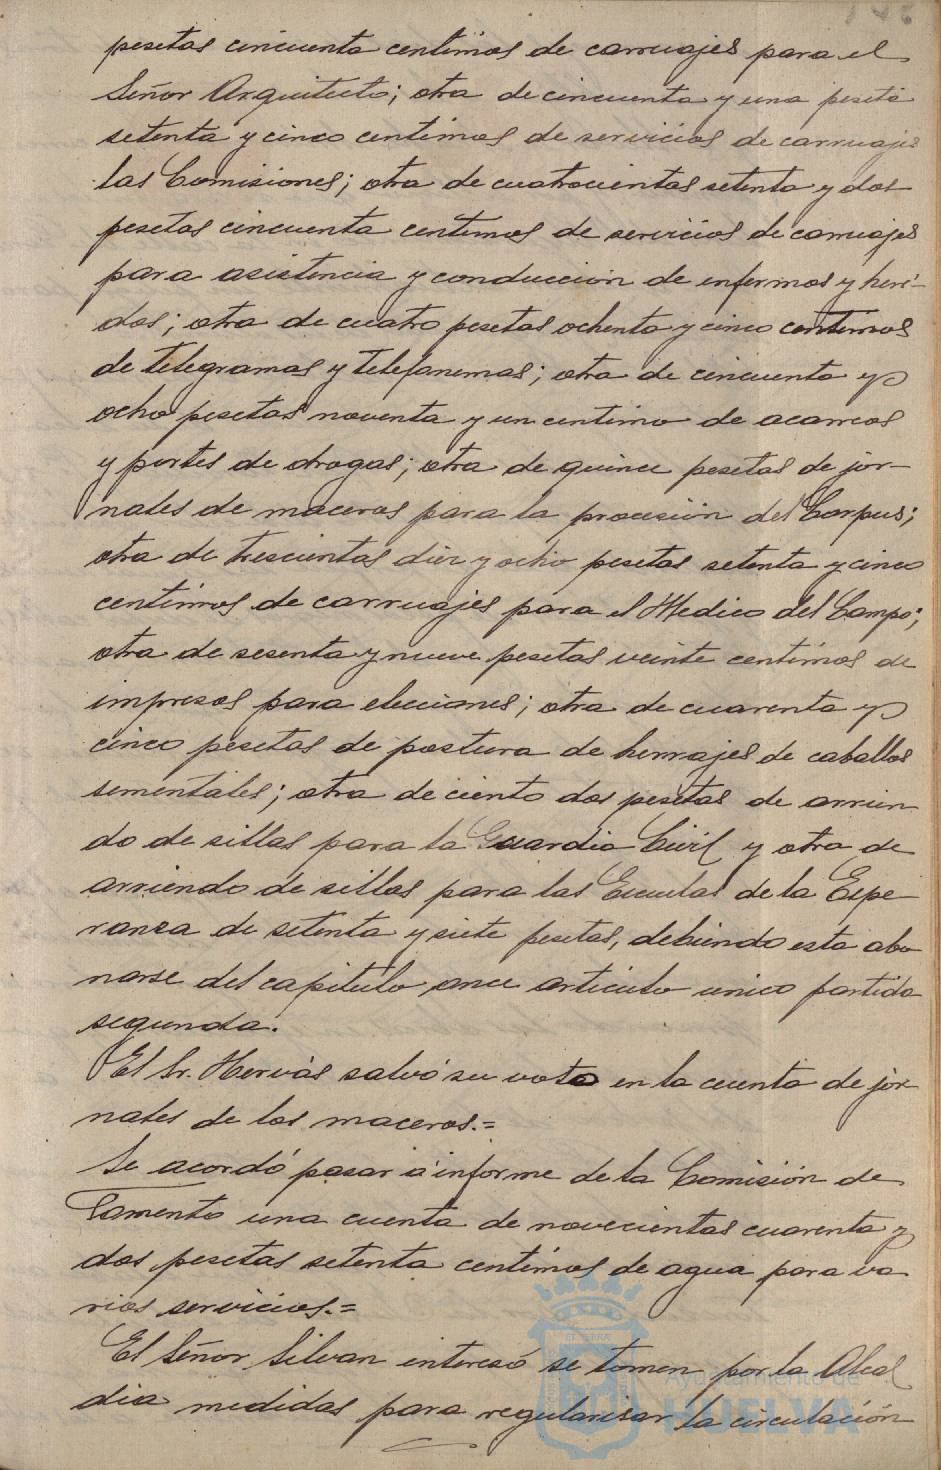 pesetas cincuenta centimos de carruajes para el
Señor Arquitecto; otra de cincuenta y una peseta
setenta y cinco centimos de servicios de carruajes
las Comisiones; otra de cuatrocientas setenta y dos
pesetas cincuenta centimos de servicios de carruajes
para asistencia y conduccion de enfermos y heri-
dos; otra de cuatro pesetas ochenta y cinco centimos
de telegramas y telefonemas; otra de cincuenta y
ocho pesetas noventa y un centimo de acarreos
y portes de drogas; otra de quince pesetas de jor-
nales de maceros para la procesión del Corpus;
otra de trescientas diez y ocho pesetas setenta y cinco
centimos de carruajes para el Medico del Campo;
otra de sesenta y nueve pesetas veinte centimos de
impresos para elecciones; otra de cuarenta y
cinco pesetas de postura de herrajes de caballos
sementales; otra de ciento dos pesetas de arrien
do de sillas para la Guardia Civil y otra de
arriendo de sillas para las Escuelas de la Espe
ranza de setenta y siete pesetas, debiendo esta abo
narse del capitulo once articulo unico partida
segunda.
El Sr. Hervás salvó su voto en la cuenta de jor
nales de los maceros.=
Se acordó pasar á informe de la Comisión de
Fomento una cuenta de novecientas cuarenta y
dos pesetas setenta centimos de agua para va
rios servicios.=
El Señor Silvan interesó se tomen por la Alcal
dia medidas para regularizar la circulación
Ayuntamiento de
HUELVA